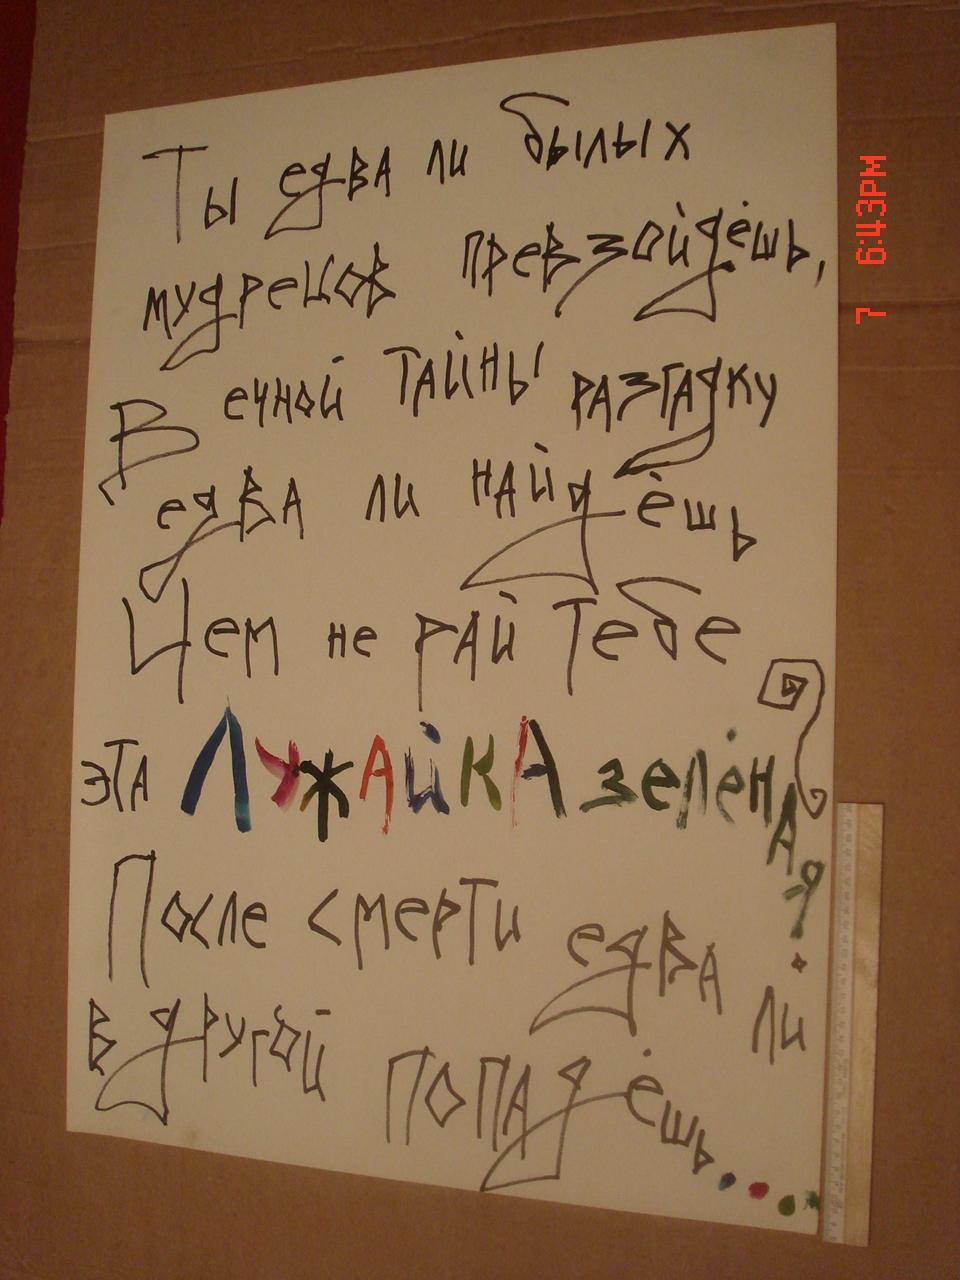 Ты едва ли былых
мудрецов превзойдёшь,
Вечной тайны разгадку
едва ли найдёшь
Чем не рай тебе
эта ЛУЖАЙКА зелёная?
После смерти едва ли
в другой попадёшь....
7 6:43PM